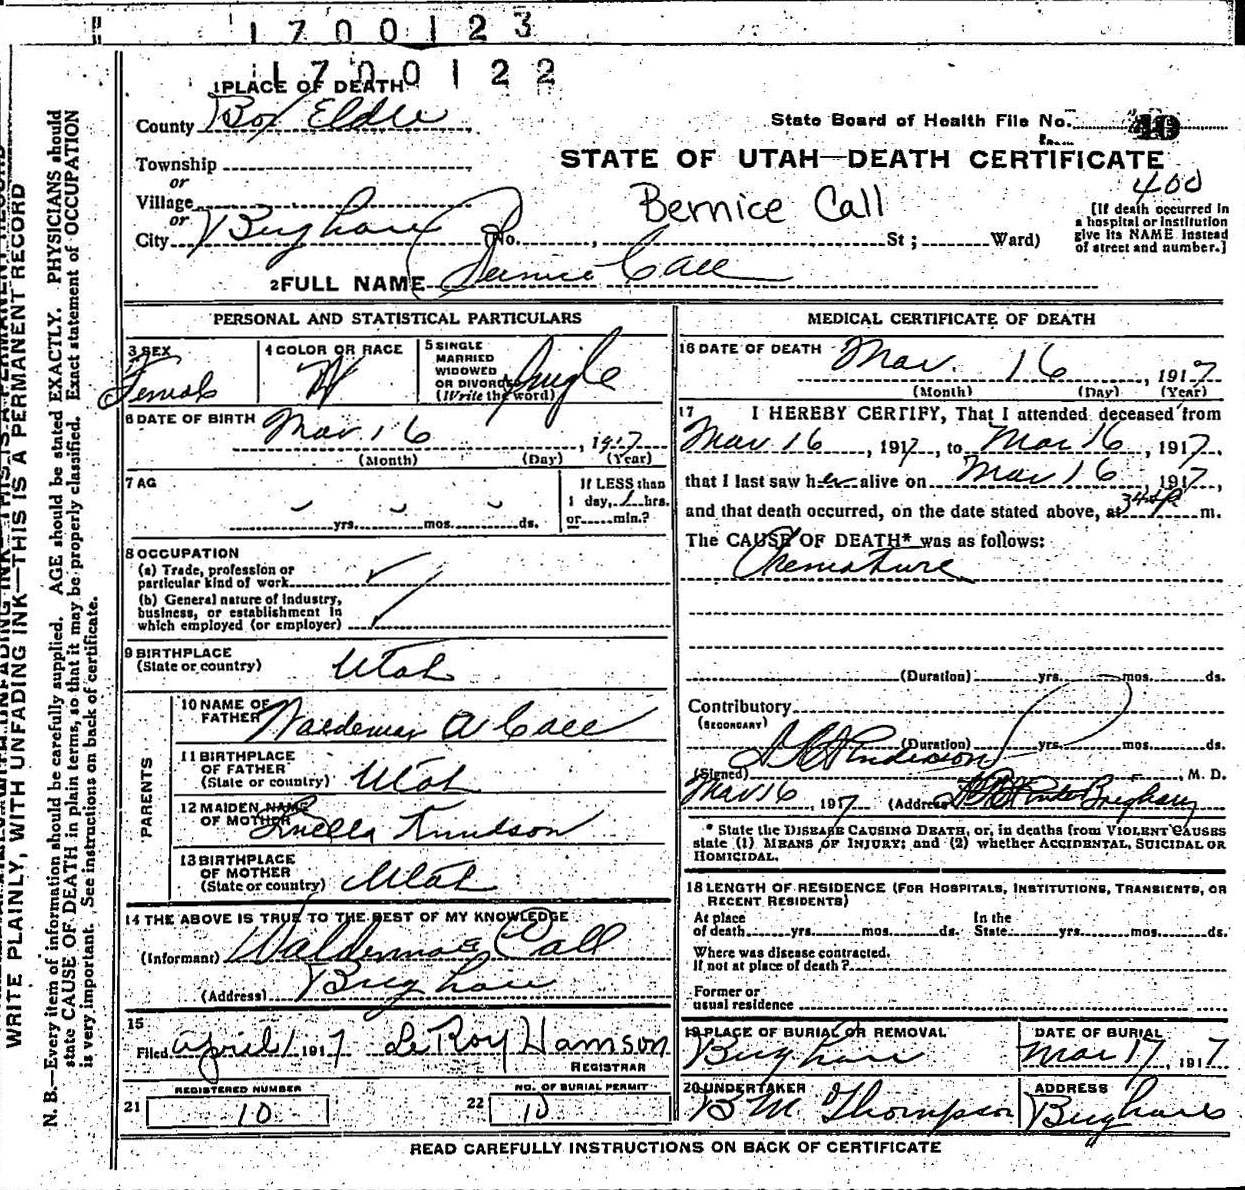 1700123
1700122
1 PLACE OF DEATH
County Box Elder
State Board of Health File No.
Township
or
STATE OF UTAH—DEATH CERTIFICATE
400
Village
or
Bernice Call
City Brigham (No. , St ; Ward)
[If death occurred in
a hospital or institution
give its NAME instead
of street and number.]
2 FULL NAME Bernice Call
PERSONAL AND STATISTICAL PARTICULARS
3 SEX
Female
4 COLOR OR RACE
W
5 SINGLE
MARRIED
WIDOWED
OR DIVORCED
(Write the word)
Single
6 DATE OF BIRTH
Mar 16 , 1917
(Month) (Day) (Year)
7 AG
yrs. mos. ds.
If LESS than
1 day, 1 hrs.
or min.?
8 OCCUPATION
(a) Trade, profession or
particular kind of work
(b) General nature of industry,
business, or establishment in
which employed (or employer)
9 BIRTHPLACE
(State or country) Utah
PARENTS
10 NAME OF
FATHER Waldemar A Call
11 BIRTHPLACE
OF FATHER
(State or country) Utah
12 MAIDEN NAME
OF MOTHER Luella Knudson
13 BIRTHPLACE
OF MOTHER
(State or country) Utah
14 THE ABOVE IS TRUE TO THE BEST OF MY KNOWLEDGE
(Informant) Waldemar Call
(Address) Brigham
15
Filed April 1 1917 LeRoy Hamson
REGISTRAR
REGISTERED NUMBER
21 10
NO. OF BURIAL PERMIT
22 10
MEDICAL CERTIFICATE OF DEATH
16 DATE OF DEATH Mar. 16 , 1917
(Month) (Day) (Year)
17 I HEREBY CERTIFY, That I attended deceased from
Mar 16 , 1917, to Mar 16 , 1917,
that I last saw her alive on Mar 16 , 1917,
and that death occurred, on the date stated above, at m.
The CAUSE OF DEATH* was as follows:
Premature
(Duration) yrs. mos. ds.
Contributory
(SECONDARY)
(Duration) yrs. mos. ds.
(Signed) Anderson , M. D.
Mar 16 , 1917 (Address) Brigham
* State the DISEASE CAUSING DEATH, or, in deaths from VIOLENT CAUSES
state (1) MEANS OF INJURY; and (2) whether ACCIDENTAL, SUICIDAL OR
HOMICIDAL.
18 LENGTH OF RESIDENCE (FOR HOSPITALS, INSTITUTIONS, TRANSIENTS, OR
RECENT RESIDENTS)
At place
of death yrs. mos. ds.
In the
State yrs. mos. ds.
Where was disease contracted.
If not at place of death?
Former or
usual residence
19 PLACE OF BURIAL OR REMOVAL
Brigham
DATE OF BURIAL
Mar 17 , 1917
20 UNDERTAKER
B M Thompson
ADDRESS
Brigham
READ CAREFULLY INSTRUCTIONS ON BACK OF CERTIFICATE
WRITE PLAINLY, WITH UNFADING INK—THIS IS A PERMANENT RECORD
N. B.—Every item of information should be carefully supplied. AGE should be stated EXACTLY. PHYSICIANS should
state CAUSE OF DEATH in plain terms, so that it may be properly classified. Exact statement of OCCUPATION
is very important. See instructions on back of certificate.